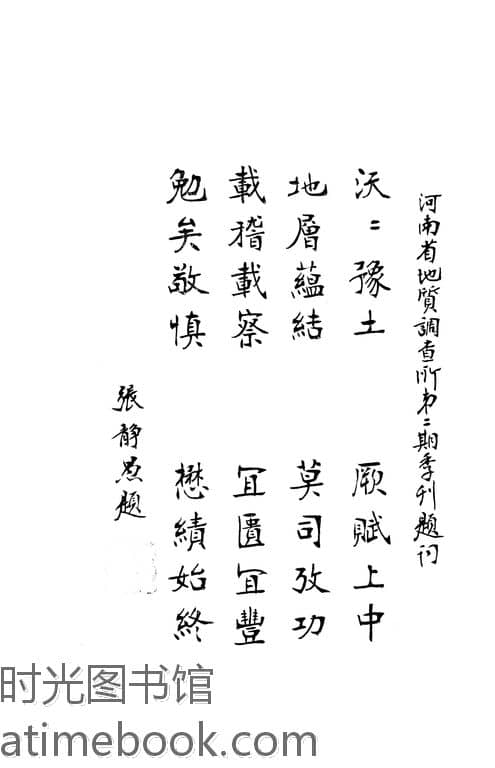 河南省地質調查所第二期季刊題詞
沃〻豫土 厥賦上中
地層蘊結 莫司攷功
載稽載察 冝匱冝豐
勉矣敬慎 懋績始終
張靜愚題
时光图书馆
atimebook.com